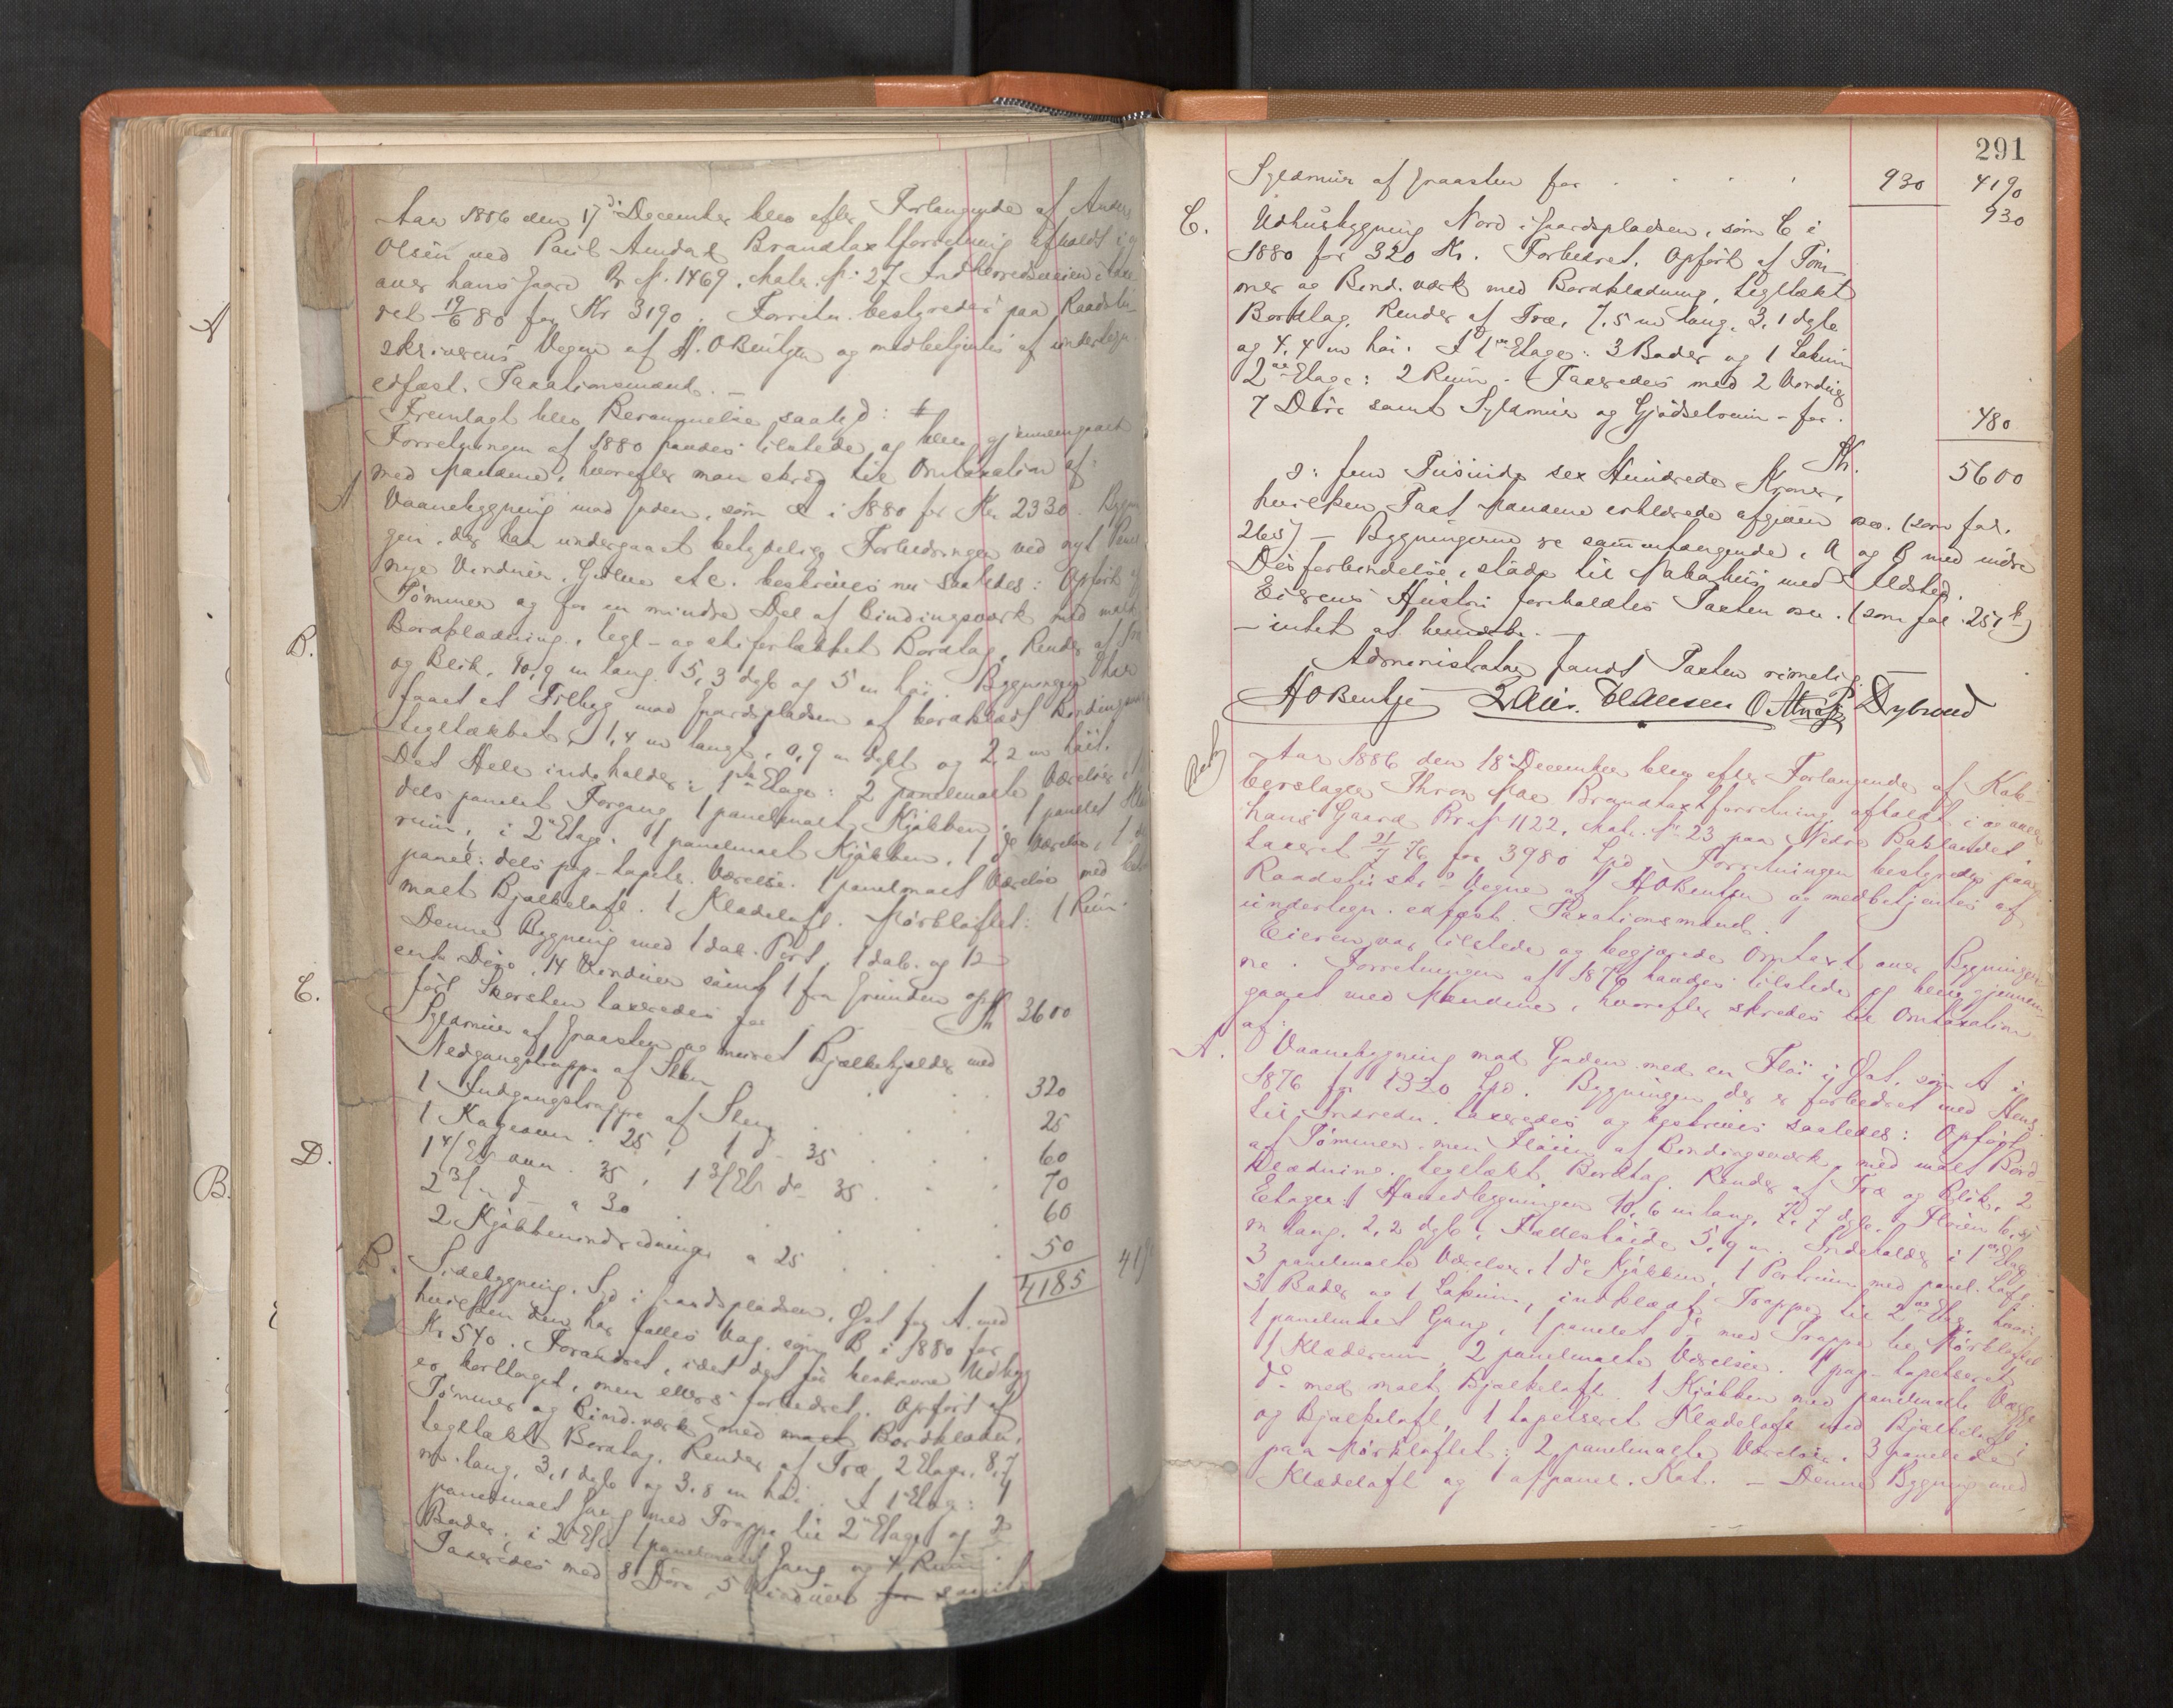 Aar 1886 den 17de December blev efter Forlangende af Anders
Olsen ved Paul Amdal Brandtaxtforretning afholdt i og
over hans Gaard Br. N. 1469, Matr. N. 27 Indherredsveien taxe-
ret 19/6 80 for Kr 3190. Forretn. bestyredes paa Raadstu-
skriverens Vegne af H. O Bentzen og medbetjentes af undertegn.
edfæst. Taxationsmænd. —
Fremlagt blev Berammelse saalyd:
Forretningen af 1880 havdes tilstede og blev gjennemgaaet
med Mændene, hvorefter man skred til Omtaxation af:
A Vaanebygning mod Gaden, som A i 1880 for Kr. 2330. Bygn
gen, der har undergaaet betydelige Forbedringer ved nyt Panel
nye Vinduer, Gulve etc. beskrives nu saaledes: Opført af
Tømmer og for en mindre Del af Bindingsværk med malt
Bordklædning, tegl- og skifertækket Bordtag, Render af Træ
og Blik, 10,9 m lang 5,3 dyb og 5 m høi. Bygningen har
faaet et Tilbyg mod Gaardspladsen af bordklædt Bindingsværk
tegltækket, 1,4 m langt, 0,9 m dybt og 2,2 m høit.
Det Hele indeholder i 1ste Etage: 2 panelmalte Værelser, 1
dels panelet Forgang, 1 panelmalt Kjøkken, 1 panelet Klæ
rum, i 2n Etage. 1 panelmalt Kjøkken, 1 do Værelse, 1
panel: dels pap-tapets. Værelse. 1 panelmalt Værelse med
malt Bjælkeloft. 1 Klædeloft. Mørkloftet: 1 Rum.
Denne Bygning med 1 dob. Port, 1 dob. og 12
enk. Døre, 14 Vinduer samt 1 fra Grunden op-
ført Skorsten taxeredes for . . Kr 3600
Syldmur af Graasten og muret Bjælkekjelder med
Nedgangstrappe af Sten . . . 320
1 Indgangstrappe af Sten . . . 25
1 Kageovn: 25, 1 do 35 . . . 60
1 4/Et ovn. 35, 1 3/Et do 35 . . 70
2 3/" do a 30 . . . 60
2 Kjøkkenindredninger a 25 . . . 50
4185
B. Sidebygning, Syd i Gaardspladsen, Øst for A. med
hvilken den har fælles Væg, som B i 1880 for
Kr. 540. Forandret, idet det før beskrevne Udbyg
er borttaget, men ellers forbedret. Opført af
Tømmer og Bind.værk med malt Bordklædn.
tegltækt Bordtag. Render af Træ. 2 Etager. 8,7
m. lang, 3,1 dyb og 3.8 m høi. I 1n Etag: 1
panelmalt Gang med Trappe til 2n Etage og 2
Boder, i 2n Et. 1 panelmalt Gang og 4 Rum.
Taxeredes med 8 Døre, 5 Vinduer for samt
A
B.
B.
C.
D.
291
Syldmur af Graasten for . . . . 930 4190
930
C. Udhusbygning Nord i Gaardspladsen, som C i
1880 for 320 Kr. Forbedret. Opført af Tøm-
mer og Bind.værk med Bordklædning, tegltækt
Bordtag, Render af Træ, 7,5 m lang, 3,1 dyb
og 4,4 m høi. I 1ste Etage: 3 Boder og 1 Lokum
2den Etage: 2 Rum. Taxeredes med 2 Vinduer
7 Døre samt Syldmur og Gjødselrum - for . 480
Kr. 5600
ɔ: fem Tusinde sex Hundrede Kroner,
hvilken Taxt Mændene erklærede afgiven osv. (som fol.
265) — Bygningerne ere sammenhængende, A og B med indre
Dørforbindelse, støde til Nabohus med Ildsted.
Eierens Hustru foreholdtes Taxten osv. (som fol. 251b)
— intet at bemærke. —
Administrator fandt Taxten rimelig. —
H O Bentzen O. Dybvad
Aar 1886 den 18de December blev efter Forlangende af Kob-
berslager Thron Moe Brandtaxtforretning afholdt i og over
hans Gaard Br. N. 1122, Matr. N. 23 paa Nedre Baklandet
taxeret 21/7 76 for 3980 Spd. Forretningen bestyredes paa
Raadstuskr.s Vegne af H O Bentzen og medbetjentes af
undertegn. edfæst. Taxationsmænd.
Eieren var tilstede og begjærede Omtaxt over Bygninger
ne. Forretningen af 1876 havdes tilstede og blev gjennem-
gaaet med Mændene, hvorefter skredes til Omtaxation
af:
A. Vaanebygning mod Gaden med en Fløi i Øst, som A i
1876 for 1320 Spd. Bygningen der er forbedret med Hens.
til Indredn. taxeredes og beskrives saaledes: Opført
af Tømmer, men Fløien af Bindingsværk, med malt Bord-
klædning. tegltækt Bordtag. Render af Træ og Blik, 2
Etager. Hovedbygningen 10,6 m lang, 7,7 dyb. Fløien 6,5
m lang, 2,2 dyb, Fælleshøide 5,9 m. Indeholder i 1ste Etage
3 panelmalte Værelser. 1 do Kjøkken, 1 Portrum med panel. Loft.
3 Boder og 1 Lokum, indklædt Trappe til 2den Etag. hvori
1 panelmalt Gang, 1 panelet do med Trappe til Mørkloftet
1 Klæderum, 2 panelmalte Værelser. 1 pap-tapetseret
do med malt Bjælkeloft. 1 Kjøkken med panelmalte Vægge
og Bjælkeloft, 1 tapetseret Klædeloft med Bjælkeloft,
paa Mørkloftet: 2 panelmalte Værelser. 3 panelede
Klædeloft og 1 afpanel. Kot. — Denne Bygning med